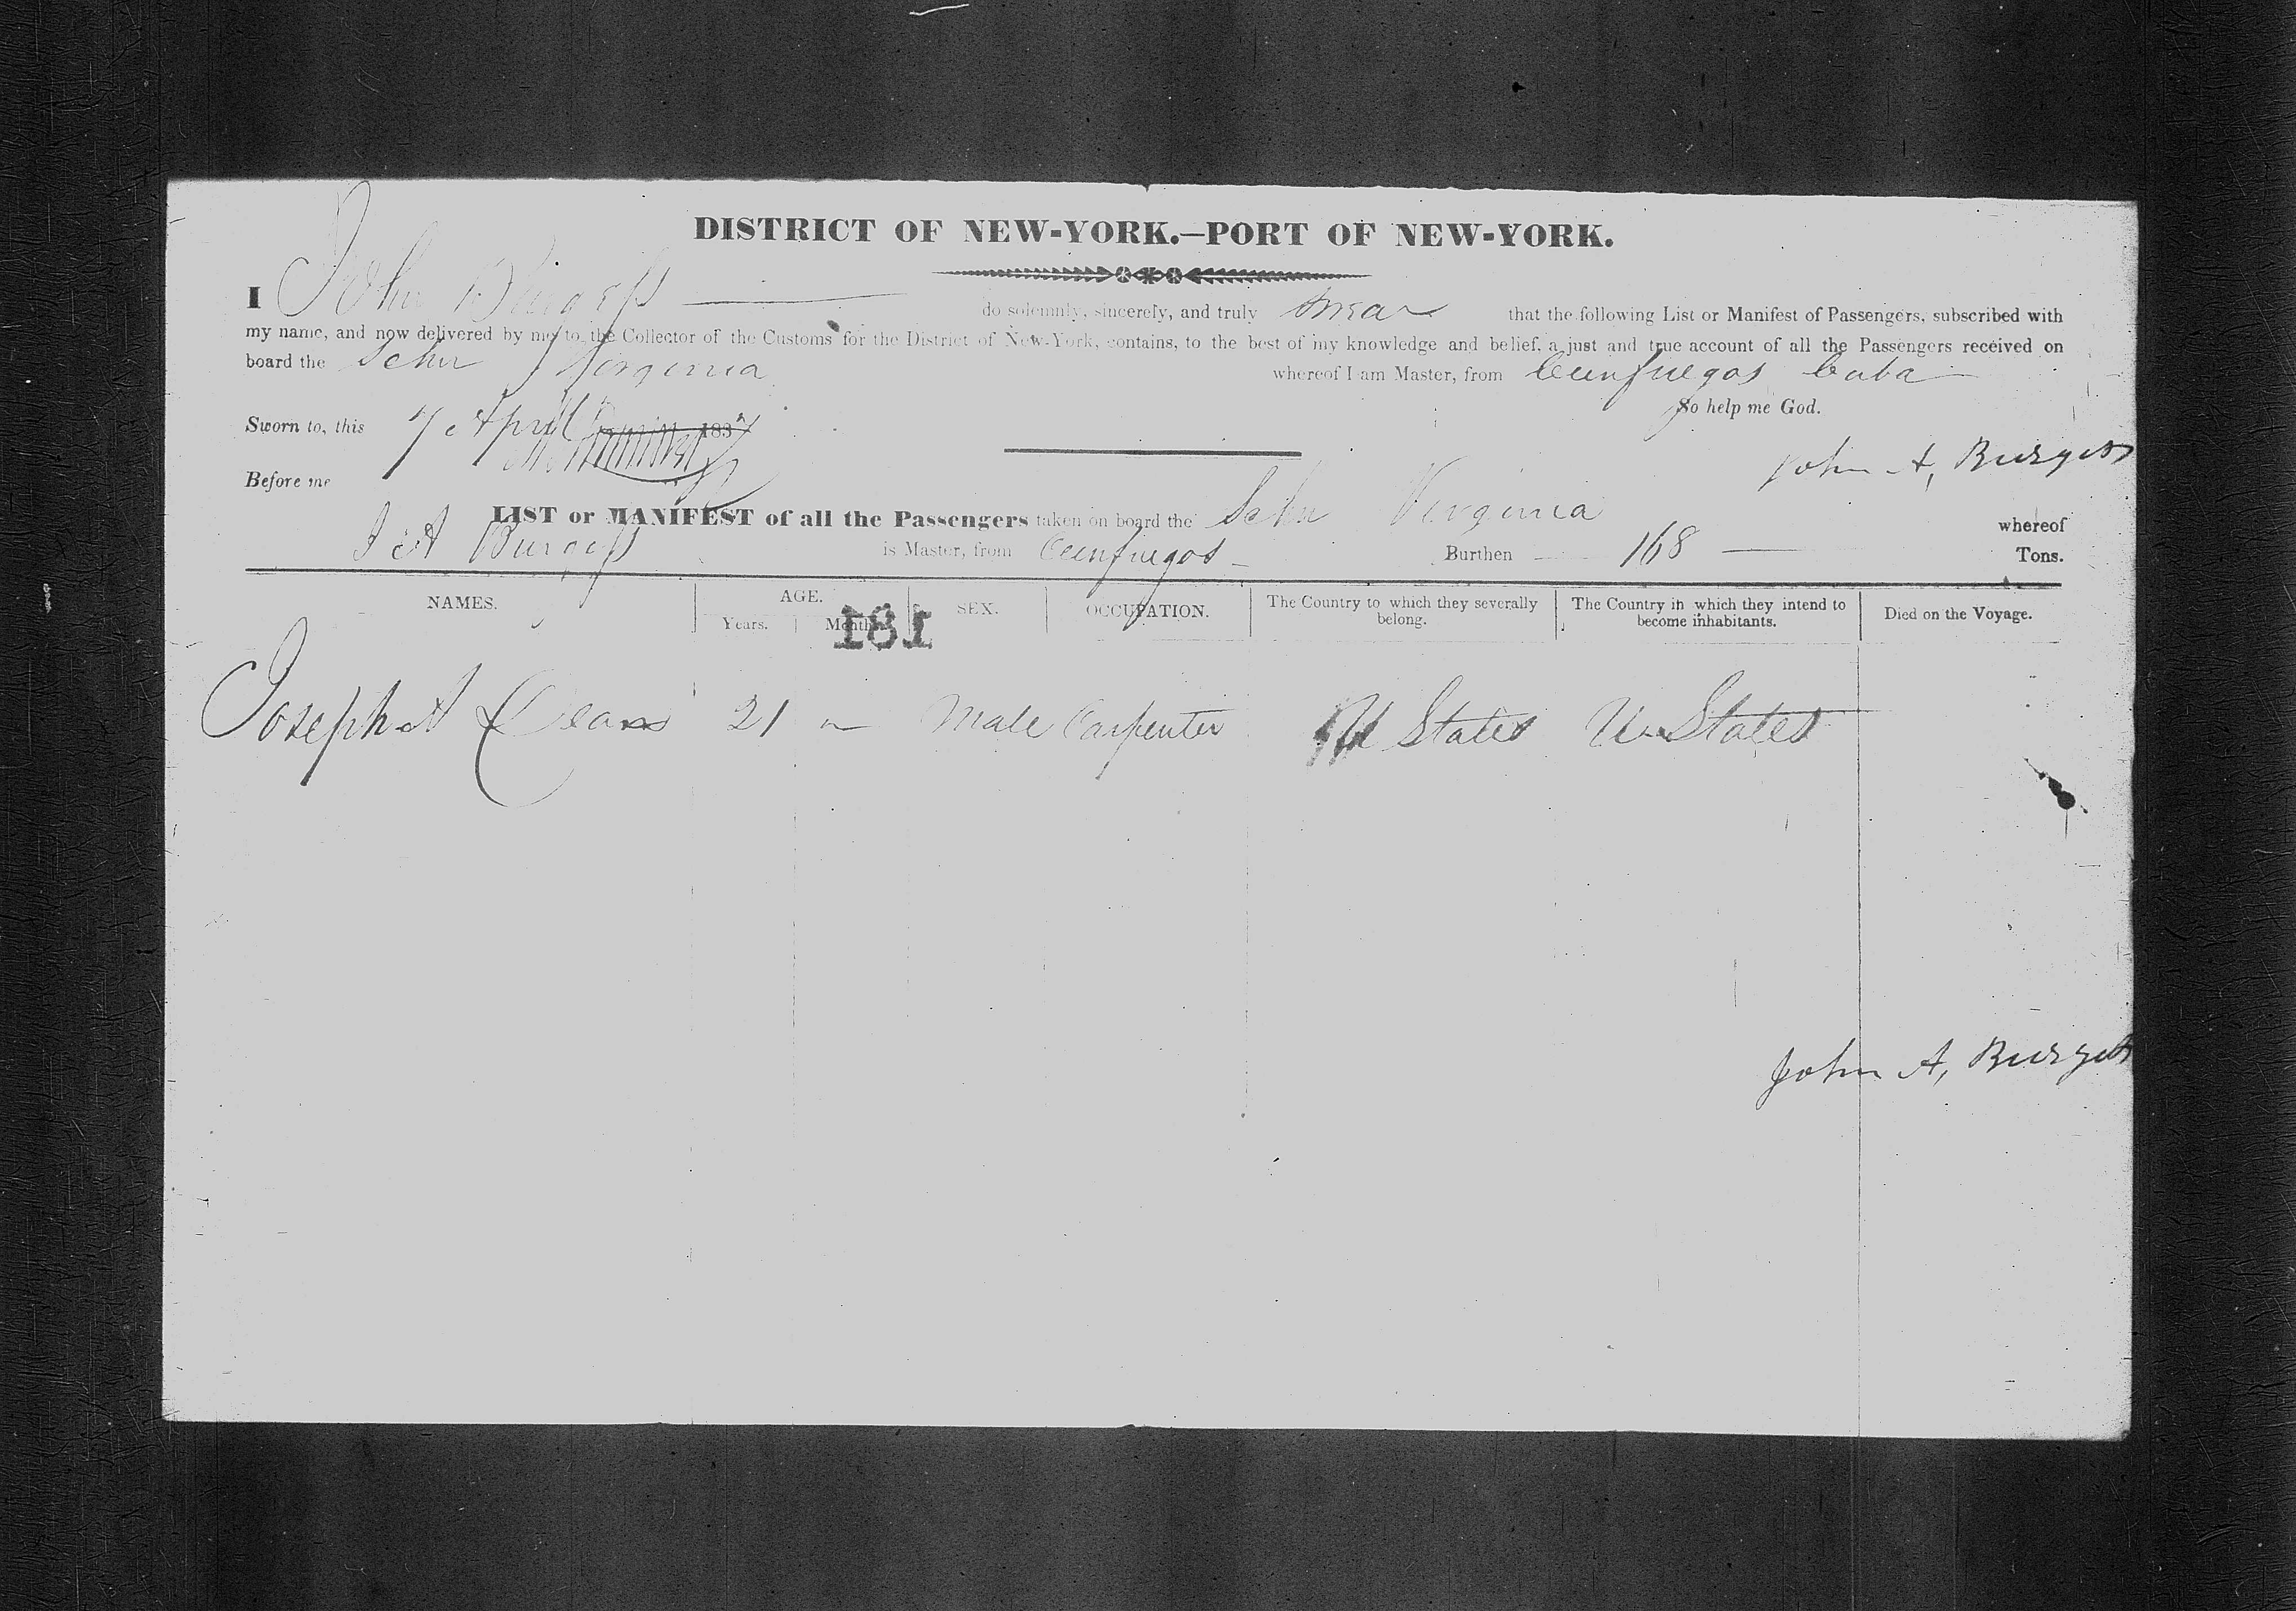 DISTRICT OF NEW-YORK.—PORT OF NEW-YORK.
I John Burgess do solemnly, sincerely, and truly swear that the following List or Manifest of Passengers, subscribed with
my name, and now delivered by me to the Collector of the Customs for the District of New-York, contains, to the best of my knowledge and belief, a just and true account of all the Passengers received on
board the Schr Virginia whereof I am Master, from Cienfuegos Cuba
So help me God.
Sworn to, this 7 April 1837
John A, Burgess
Before me
LIST or MANIFEST of all the Passengers taken on board the Schr Virginia whereof
J A Burgess is Master, from Cienfuegos Burthen 168 Tons.
NAMES. AGE. Years. Months SEX. OCCUPATION. The Country to which they severally belong. The Country in which they intend to become inhabitants. Died on the Voyage.
181
Joseph A 21 Male Carpenter U States U States
John A, Burgess